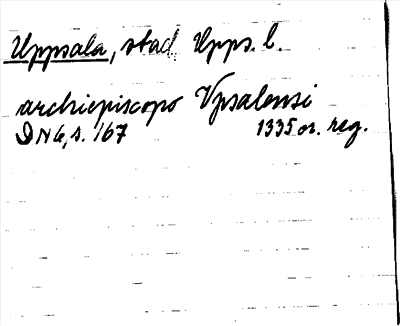 Uppsala, stad Upps. l.
archiepiscopo Vpsalensi
DN6, s. 167 1335 or. reg.